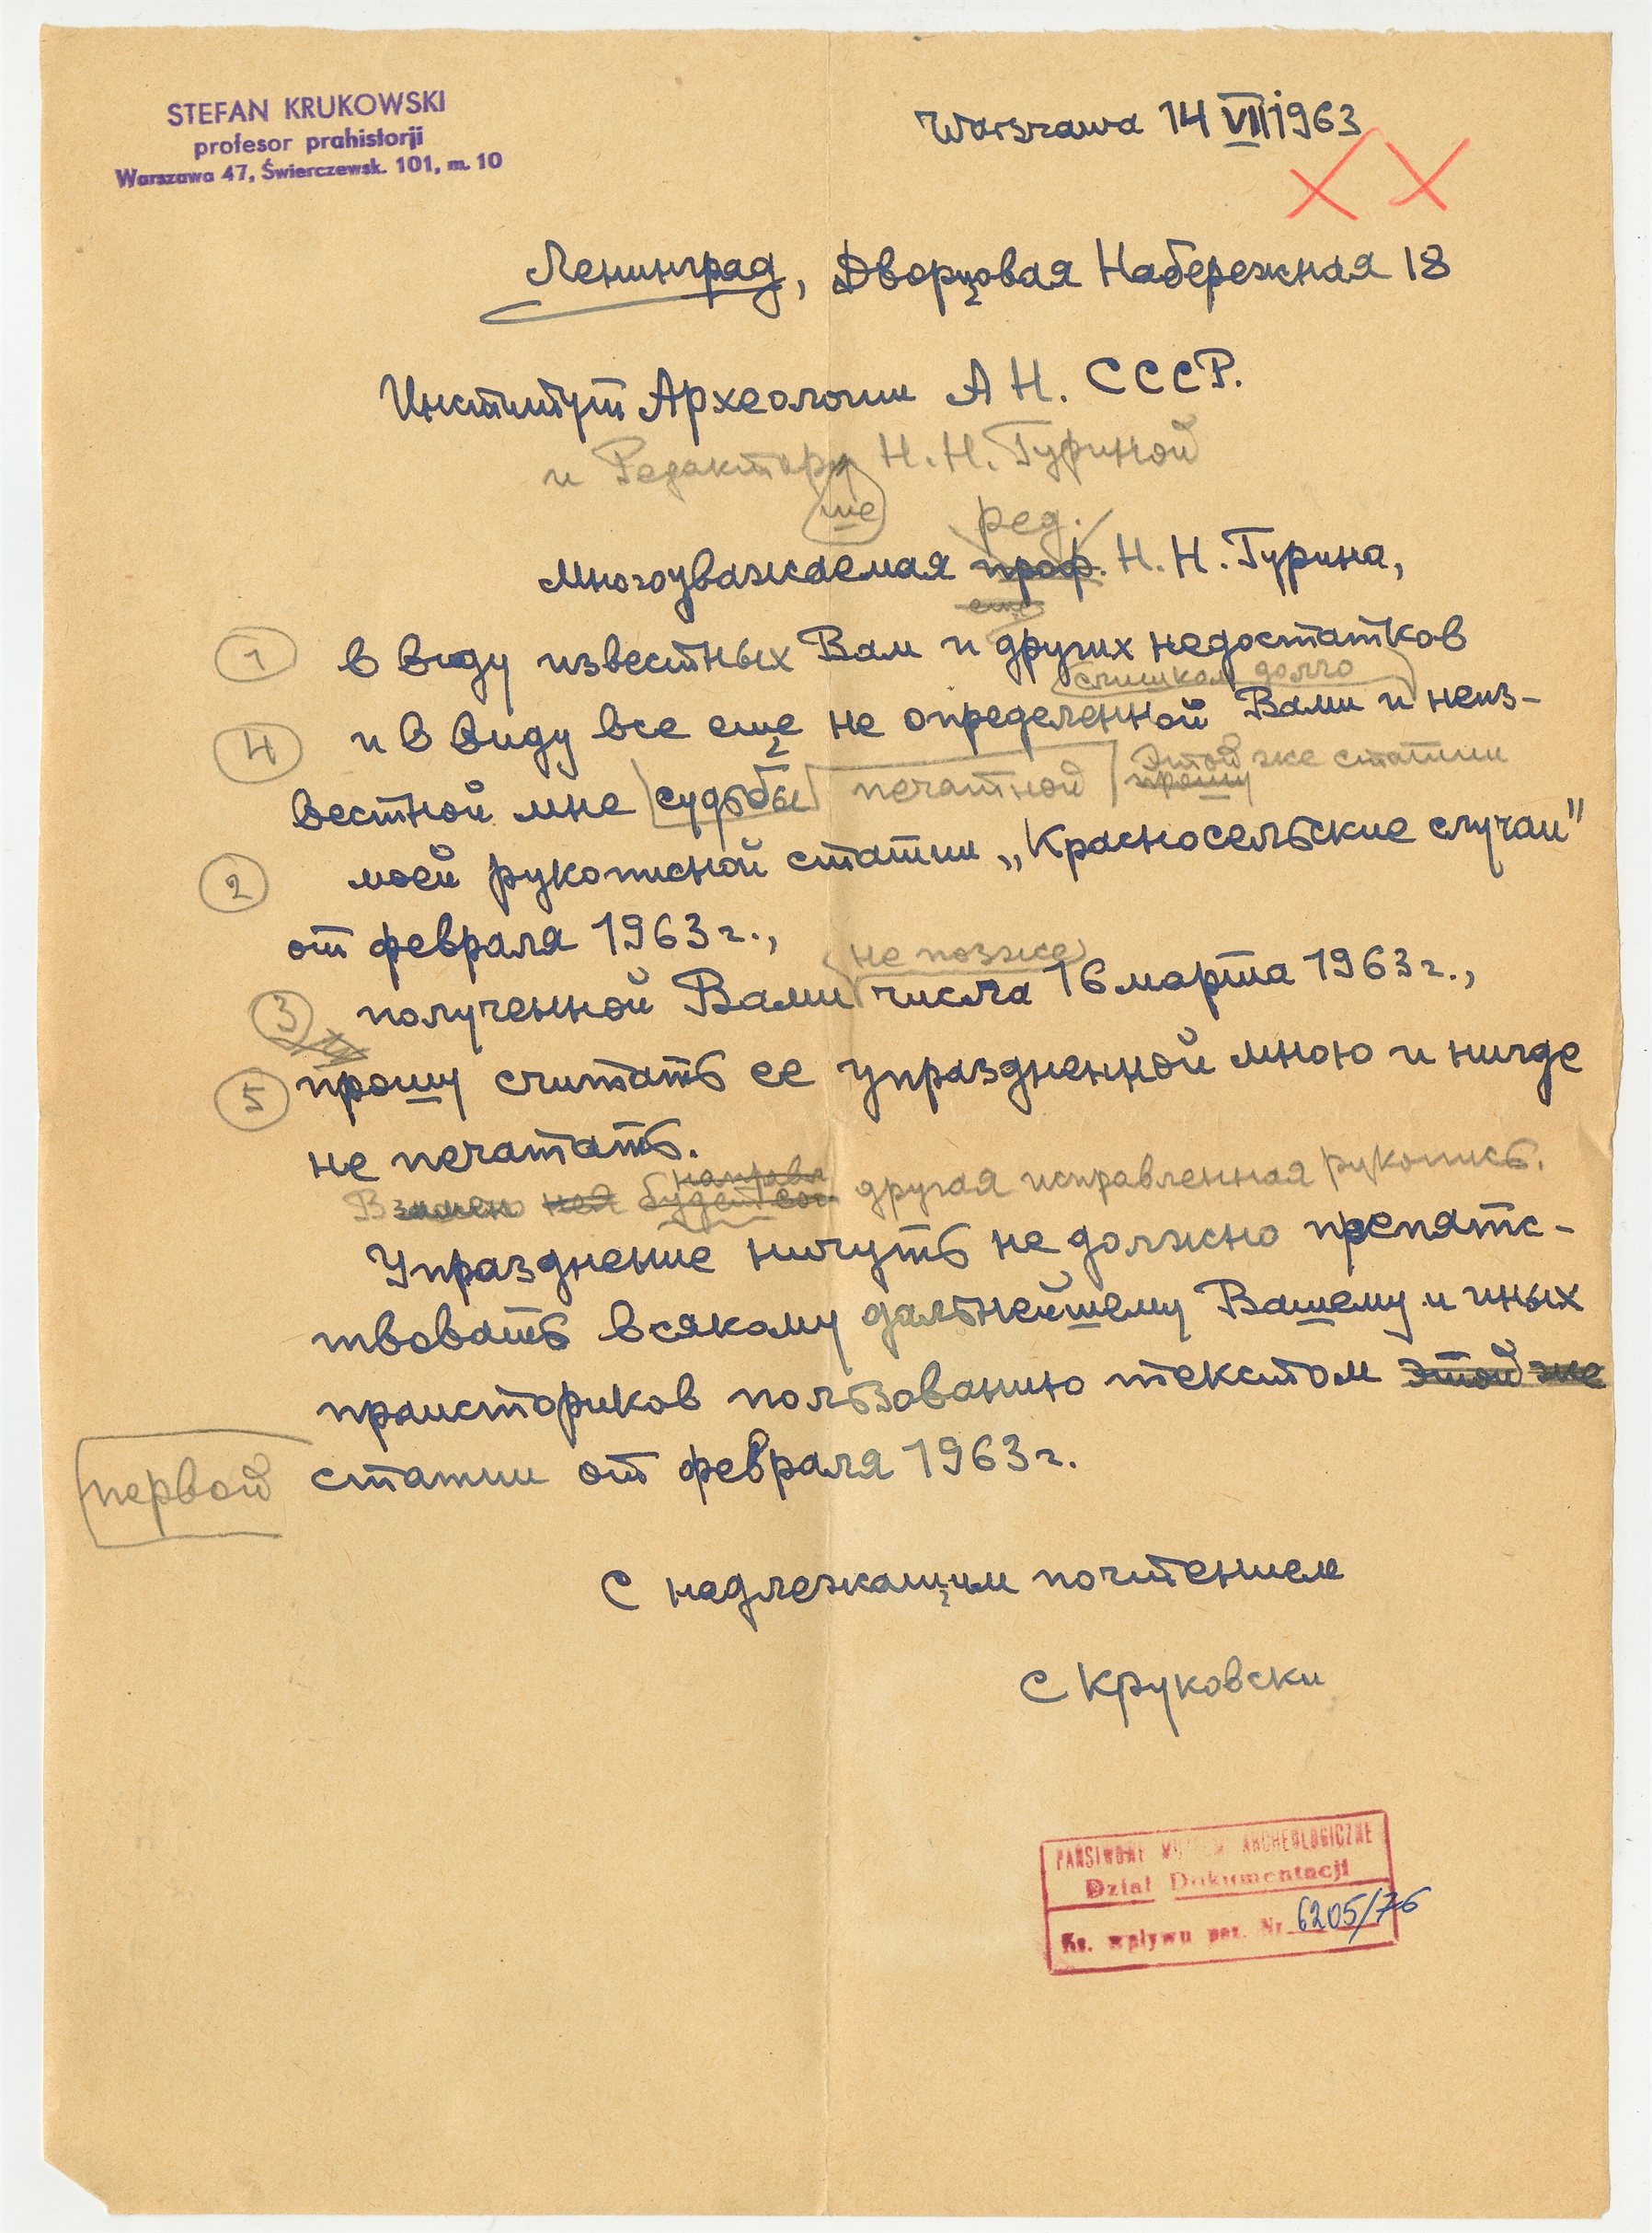 STEFAN KRUKOWSKI
profesor prahistorji
Warszawa 47, Świerczewsk. 101, m. 10
Warszawa 14 VII 1963
X X
Ленинград, Дворцовая Набережная 18
Институт Археологии А Н. СССР.
и Редактору Н. Н. Гуриной
ше
ред.
Многоуважаемая проф. Н. Н. Гурина,
еще
1 в виду известных Вам и других недостатков
слишком долго
4 и в виду все еще не определенной Вами и неиз-
Этой же статьи
вестной мне судьбы печатной прошу
2 моей рукописной статьи „Красносельские случаи"
от февраля 1963 г.,
не позже
3 полученной Вами числа 16 марта 1963 г.,
5 прошу считать ее упраздненной мною и нигде
не печатать.
направл
Взамен ней будет другая исправленная рукопись.
Упразднение ничуть не должно препятс-
твовать всякому дальнейшему Вашему и иных
праисториков пользованию текстом этой же
первой статьи от февраля 1963 г.
С надлежащим почтением
С Круковски
PAŃSTWOWE MUZEUM ARCHEOLOGICZNE
Dział Dokumentacji
Ks. wpływu poz. Nr 6205/76